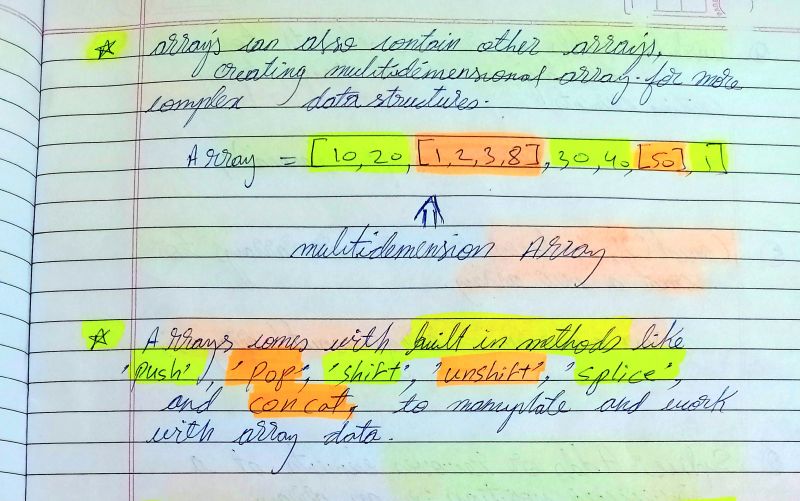 arrays can also contain other arrays,
creating mulitidemensional array for more
complex data structures.
Array = [10,20,[1,2,3,8],30,40,[50],1]
mulitidemension Array
Arrays comes with built in methods like
'push', 'pop', 'shift', 'unshift', 'splice',
and concat, to manuplate and work
with array data.